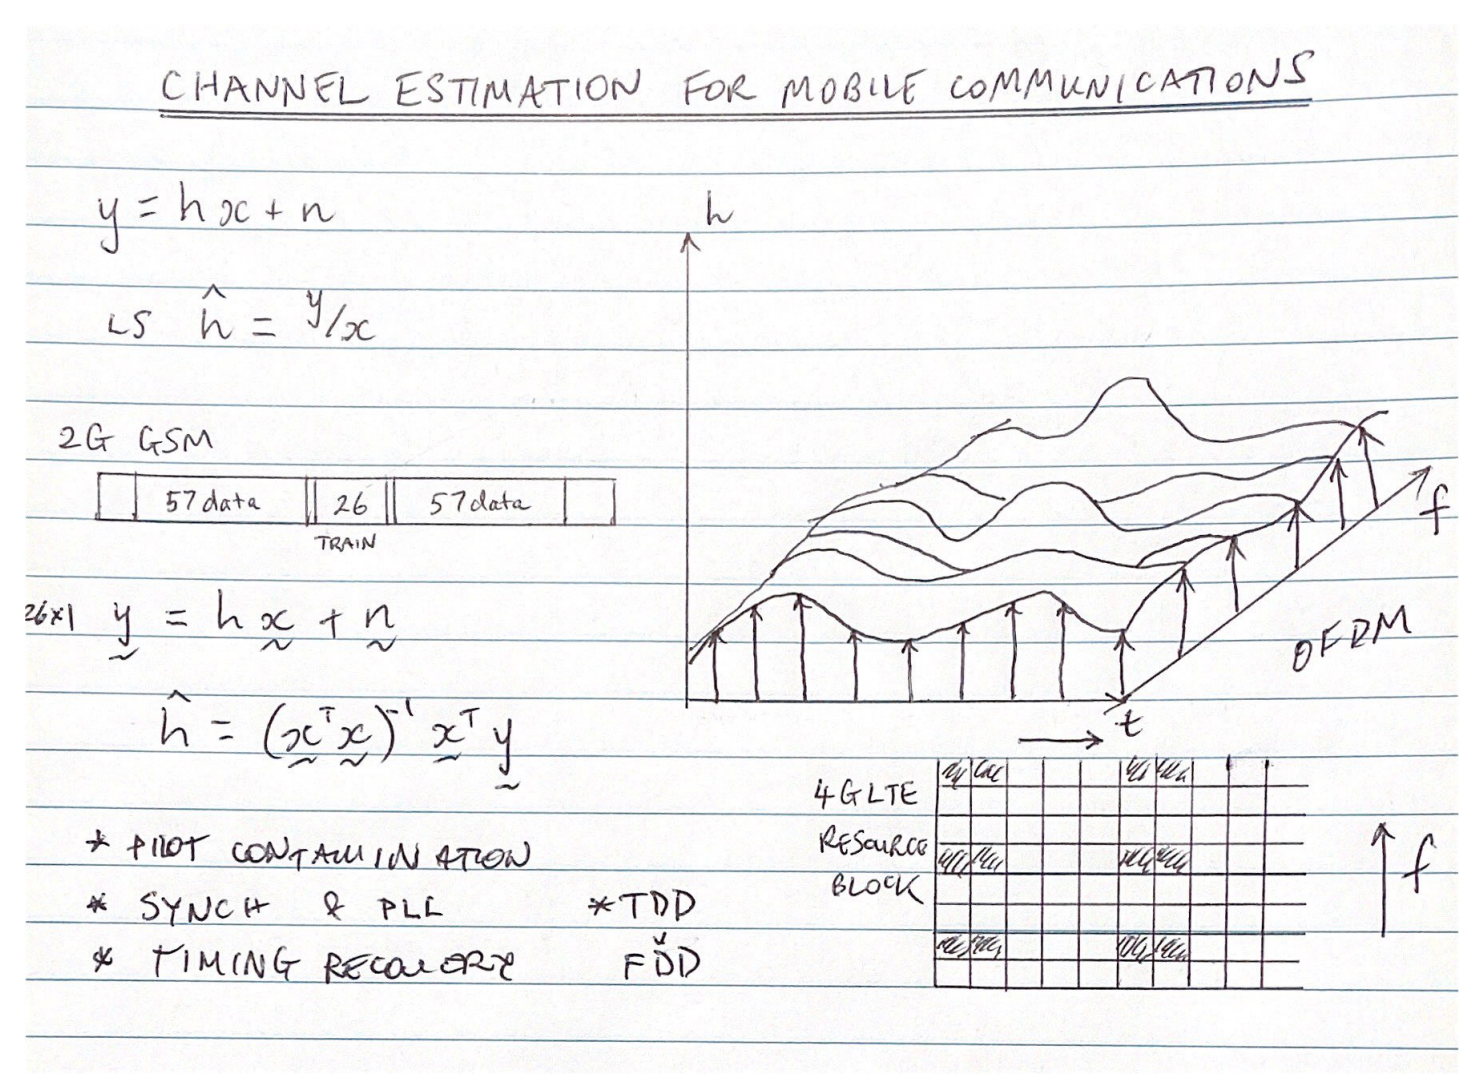 CHANNEL ESTIMATION FOR MOBILE COMMUNICATIONS
y = hx + n
LS ĥ = y/x
2G GSM
57 data 26 57 data
TRAIN
26x1 y = h x + n
ĥ = (xᵀx)⁻¹ xᵀ y
* PILOT CONTAMINATION
* SYNCH & PLL
* TIMING RECOVERY
* TDD
v
FDD
h
f
OFDM
t
4G LTE
RESOURCE
BLOCK
f